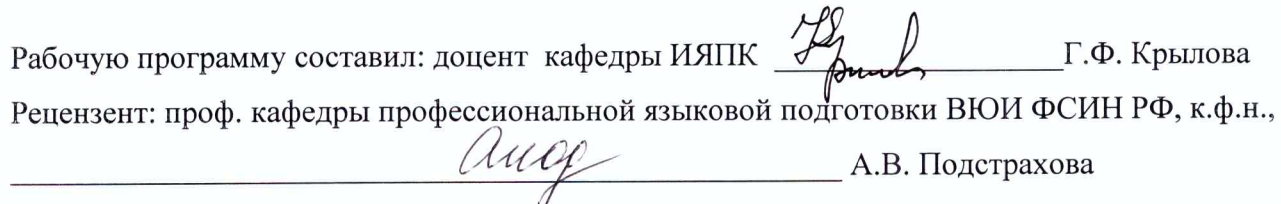 Рабочую программу составил: доцент кафедры ИЯПК Г.Ф. Крылова
Рецензент: проф. кафедры профессиональной языковой подготовки ВЮИ ФСИН РФ, к.ф.н.,
А.В. Подстрахова